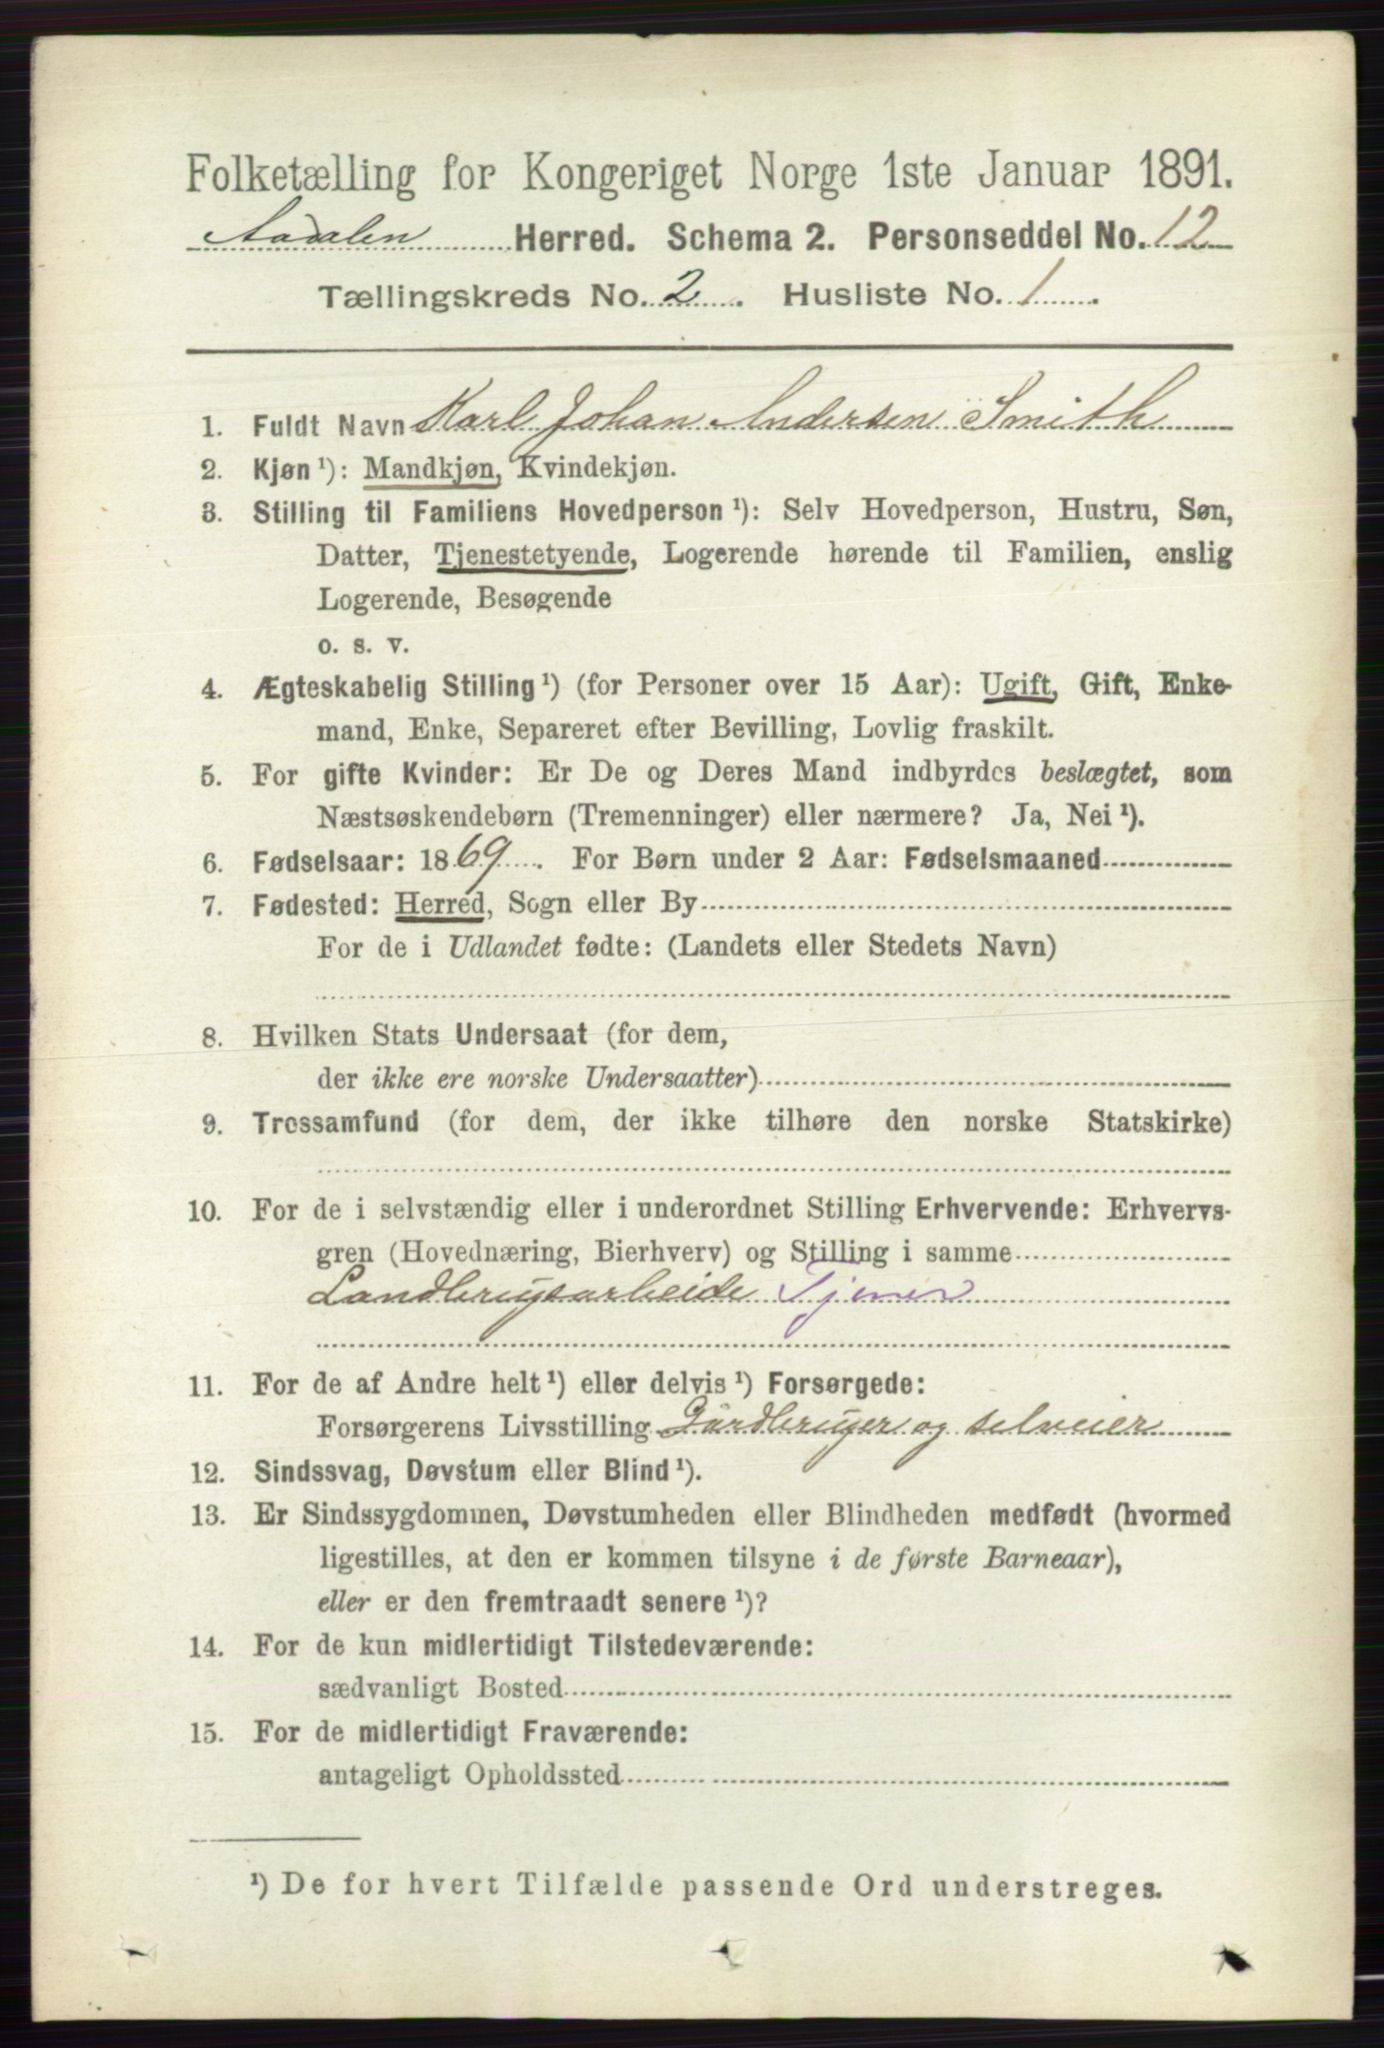 Folketælling for Kongeriget Norge 1ste Januar 1891.
Aadalen Herred. Schema 2. Personseddel No. 12
Tællingskreds No. 2. Husliste No. 1.
1. Fuldt Navn Karl Johan Andersen Smith
2. Kjøn ¹): Mandkjøn, Kvindekjøn.
3. Stilling til Familiens Hovedperson ¹): Selv Hovedperson, Hustru, Søn,
Datter, Tjenestetyende, Logerende hørende til Familien, enslig
Logerende, Besøgende
o. s. v.
4. Ægteskabelig Stilling ¹) (for Personer over 15 Aar): Ugift, Gift, Enke-
mand, Enke, Separeret efter Bevilling, Lovlig fraskilt.
5. For gifte Kvinder: Er De og Deres Mand indbyrdes beslægtet, som
Næstsøskendebørn (Tremenninger) eller nærmere? Ja, Nei ¹).
6. Fødselsaar: 1869. For Børn under 2 Aar: Fødselsmaaned
7. Fødested: Herred, Sogn eller By
For de i Udlandet fødte: (Landets eller Stedets Navn)
8. Hvilken Stats Undersaat (for dem,
der ikke ere norske Undersaatter)
9. Trossamfund (for dem, der ikke tilhøre den norske Statskirke)
10. For de i selvstændig eller i underordnet Stilling Erhvervende: Erhvervs-
gren (Hovednæring, Bierhverv) og Stilling i samme
Landbrugsarbeide Tjener
11. For de af Andre helt ¹) eller delvis ¹) Forsørgede:
Forsørgerens Livsstilling Gårdbruger og selveier
12. Sindssvag, Døvstum eller Blind ¹).
13. Er Sindssygdommen, Døvstumheden eller Blindheden medfødt (hvormed
ligestilles, at den er kommen tilsyne i de første Barneaar),
eller er den fremtraadt senere ¹)?
14. For de kun midlertidigt Tilstedeværende:
sædvanligt Bosted
15. For de midlertidigt Fraværende:
antageligt Opholdssted
¹) De for hvert Tilfælde passende Ord understreges.